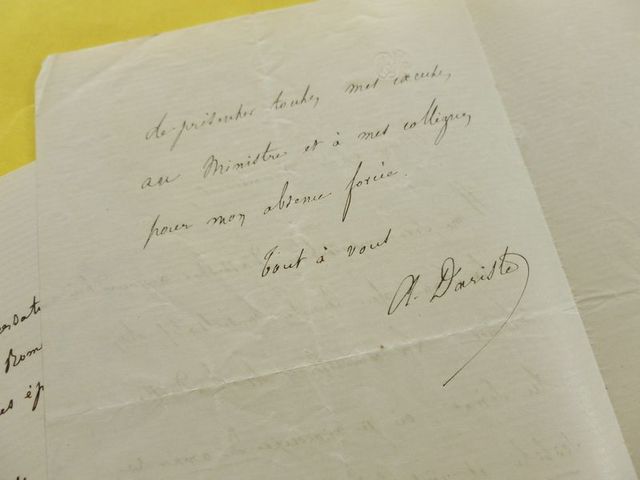 de présenter toutes mes excuses,
au Ministre et à mes collègues,
pour mon absence forcée.
Tout à vous
A. Dariste
Rom